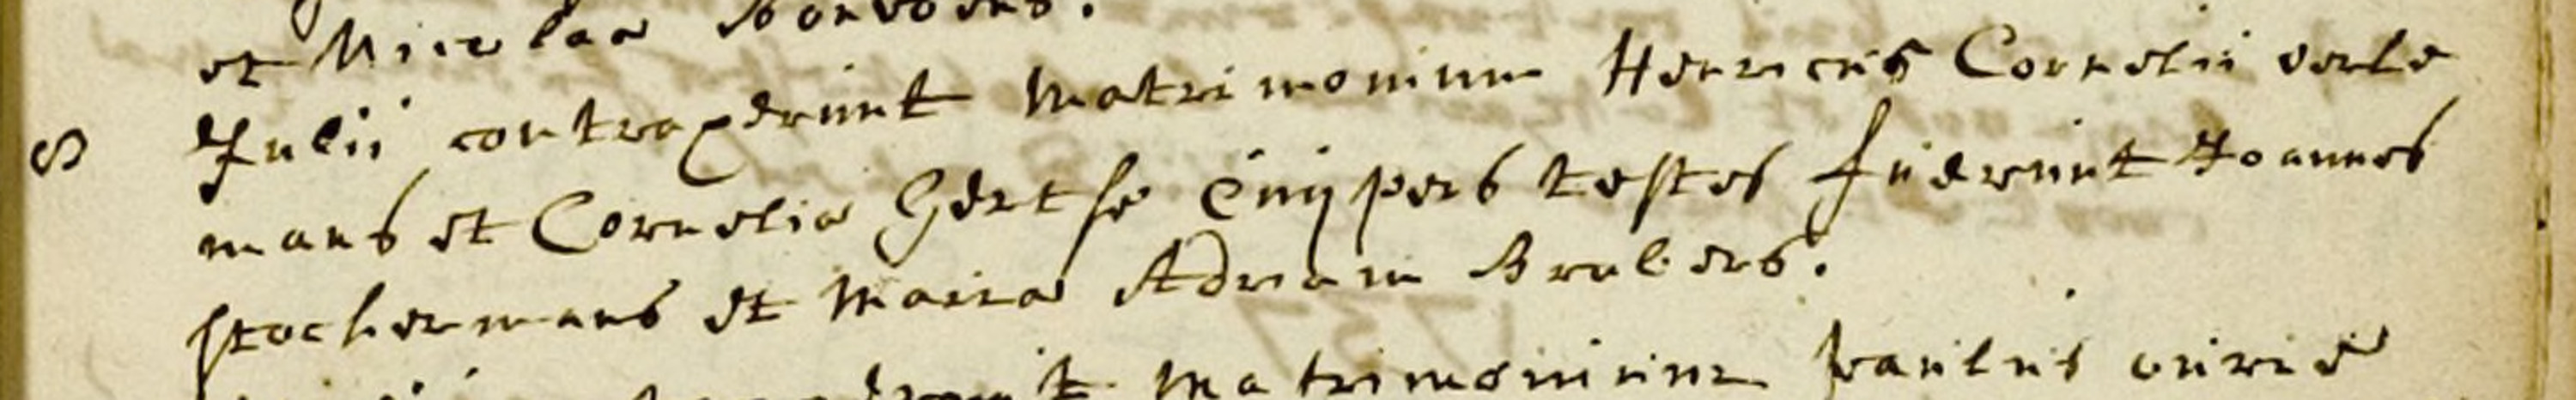 et Nicolao
8 Julii contraxerunt Matrimonium Henricus Cornelii verle
mans et Cornelia Gertse Cuÿpers testes fuerunt Joannes
stockermans et Maria Adriaen Brubers.
Matrimonium Paulus